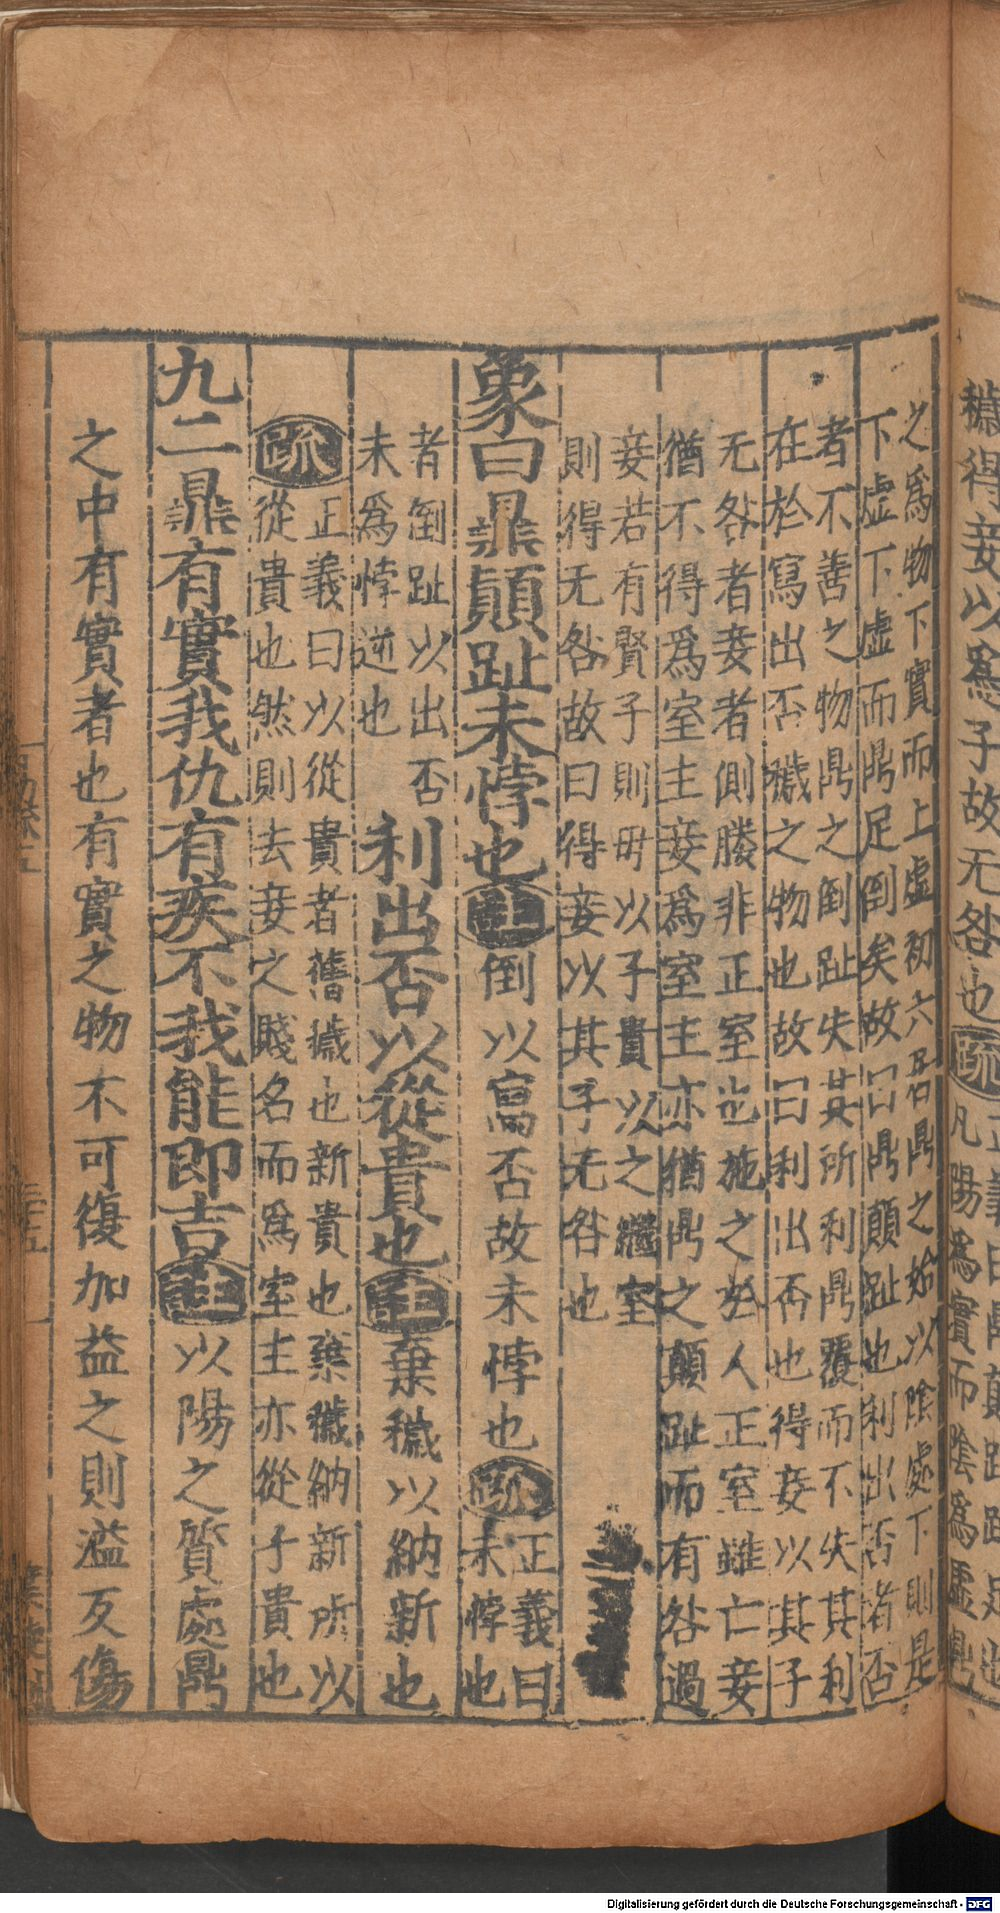 穢得妾以爲子故无咎也疏
凡陽爲實而陰爲虛鼎
之爲物下實而上虛初六居鼎之始以陰處下則是
下虛下虛而鼎足倒矣故曰鼎顛趾也利出否者否
者不善之物鼎之倒趾失其所利鼎覆而不失其利
在於寫出否穢之物也故曰利出否也得妾以其子
无咎者妾者側媵非正室也施之於人正室雖亡妾
猶不得爲室主妾爲室主亦猶鼎之顛趾而有咎過
妾若有賢子則毋以子貴以之繼室
則得无咎故曰得妾以其子无咎也
象曰鼎顛趾未悖也註倒以寫否故未悖也疏正義曰
未悖也
者倒趾以出否
未爲悖逆也
利出否以從貴也註棄穢以納新也
疏正義曰以從貴者舊穢也新貴也棄穢納新所以
從貴也然則去妾之賤名而爲室主亦從子貴也
九二鼎有實我仇有疾不我能即吉註以陽之質處鼎
之中有實者也有實之物不可復加益之則溢反傷
Digitalisierung gefördert durch die Deutsche Forschungsgemeinschaft - DFG